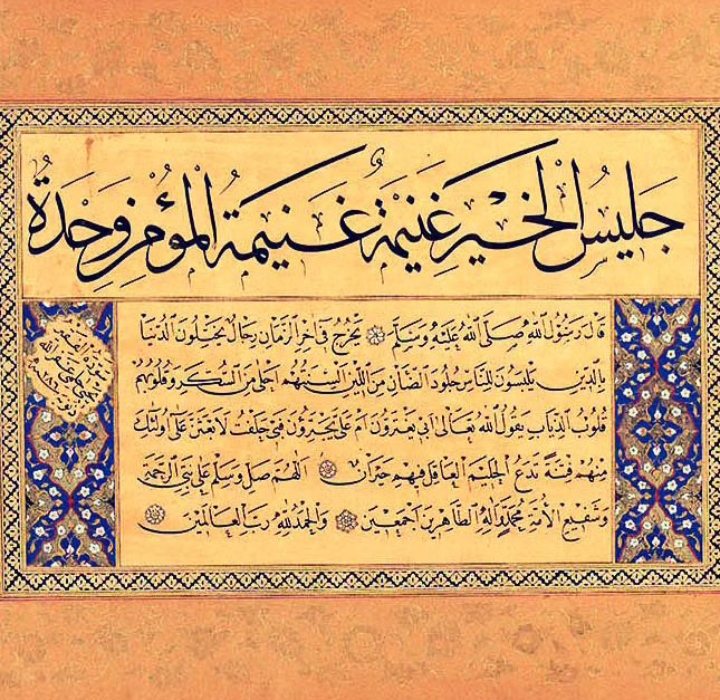 جَليسُ الخَيْرِ غَنيمَةٌ غَنيمَةُ المُؤمِنِ وَحْدَةٌ
قَالَ رَسُولُ اللهِ صَلَّى اللهُ عَلَيْهِ وَسَلَّمَ يَخْرُجُ فِي آخِرِ الزَّمَانِ رِجَالٌ يَخْتِلُونَ الدُّنْيَا
بِالدِّينِ يَلْبَسُونَ لِلنَّاسِ جُلُودَ الضَّأنِ مِنَ اللِّينِ اَلْسِنَتُهُمْ اَحْلَى مِنَ السُّكَّرِ وَقُلُوبُهُمْ
قُلُوبُ الذِّيَابِ يَقُولُ اللهُ تَعَالَى اَبِي يَغْتَرُّونَ اَمْ عَلَيَّ يَجْتَرِؤُنَ فَبِي حَلَفْتُ لَاَبْعَثَنَّ عَلَى اُولئِكَ
مِنْهُمْ فِتْنَةً تَدَعُ الْحَلِيمَ الْعَاقِلَ فِيهِمْ حَيْرَانَ اللّٰهُمَّ صَلِّ وَسَلِّمْ عَلَى نَبِيِّ الرَّحْمَةِ
وَشَفِيعِ الْاُمَّةِ مُحَمَّدٍ وَاٰلِهِ الطَّاهِرِينَ اَجْمَعِينَ وَالْحَمْدُ لِلّٰهِ رَبِّ الْعَالَمِينَ